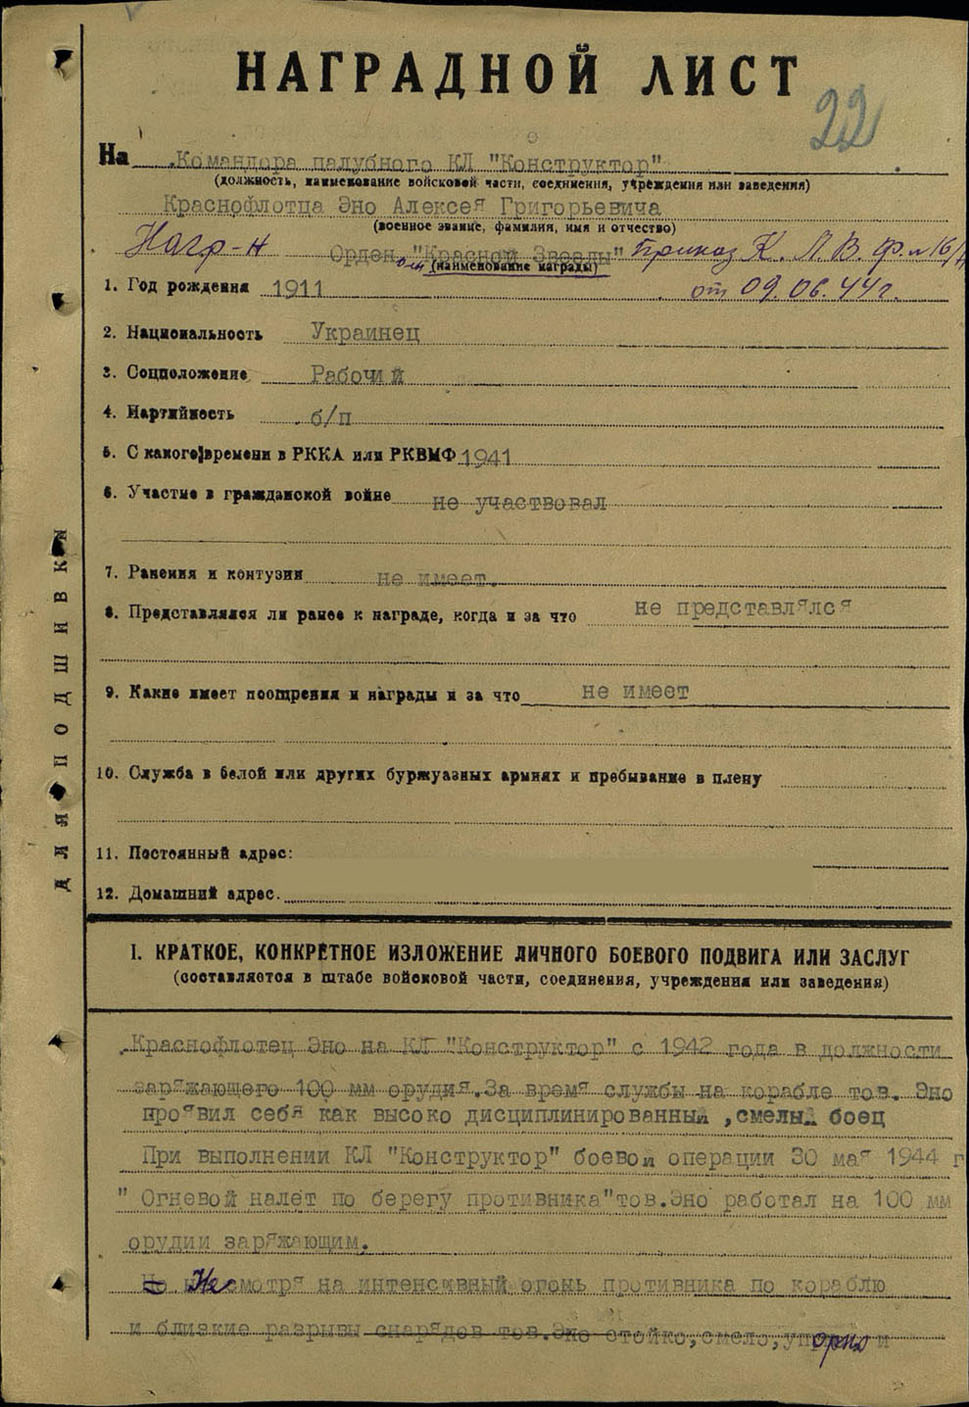 НАГРАДНОЙ ЛИСТ
22
На Командора палубного КЛ "Конструктор"
(должность, наименование войсковой части, соединения, учреждения или заведения)
Краснофлотца Эно Алексея Григорьевича
(военное звание, фамилия, имя и отчество)
Нагр-н Орден "Красной Звезды" Приказ К. Л. В. Ф. №16/
(наименование награды)
от 09.06.44г.
1. Год рождения 1911
2. Национальность Украинец
3. Соцположение Рабочий
4. Партийность б/п
5. С какого времени в РККА или РКВМФ 1941
6. Участие в гражданской войне не участвовал
7. Ранения и контузии не имеет.
8. Представлялся ли ранее к награде, когда и за что не представлялся
9. Какие имеет поощрения и награды и за что не имеет
10. Служба в белой или других буржуазных армиях и пребывание в плену
11. Постоянный адрес:
12. Домашний адрес.
ДЛЯ ПОДШИВКИ
I. КРАТКОЕ, КОНКРЕТНОЕ ИЗЛОЖЕНИЕ ЛИЧНОГО БОЕВОГО ПОДВИГА ИЛИ ЗАСЛУГ
(составляется в штабе войсковой части, соединения, учреждения или заведения)
Краснофлотец Эно на КЛ "Конструктор" с 1942 года в должности
заряжающего 100 мм орудия. За время службы на корабле тов. Эно
проявил себя как высоко дисциплинированный ,смелый боец
При выполнении КЛ "Конструктор" боевой операции 30 мая 1944 г
" Огневой налёт по берегу противника" тов.Эно работал на 100 мм
орудии заряжающим.
Несмотря на интенсивный огонь противника по кораблю
и близкие разрывы снарядов тов.Эно стойко,смело,упорно и